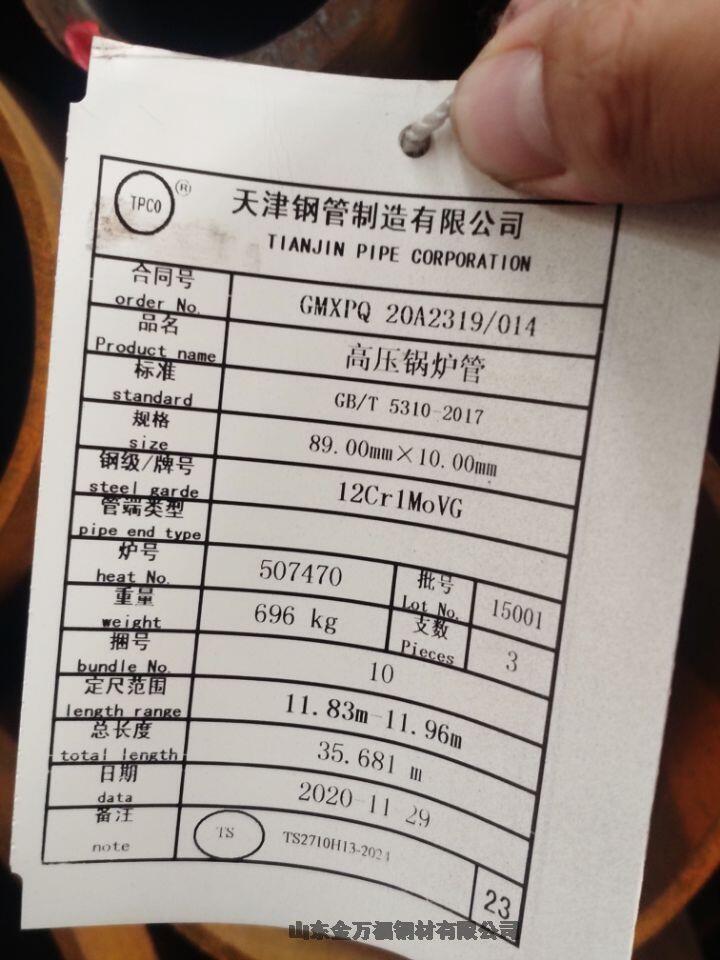 TPCO ®
天津钢管制造有限公司
TIANJIN PIPE CORPORATION
合同号
order No.
GMXPQ 20A2319/014
品名
Product name
高压锅炉管
标准
standard
GB/T 5310-2017
规格
size
89.00mm×10.00mm
钢级/牌号
steel garde
12Cr1MoVG
管端类型
pipe end type
炉号
heat No.
507470
批号
Lot No.
15001
重量
weight
696 kg
支数
Pieces
3
捆号
bundle No.
10
定尺范围
length range
11.83m-11.96m
总长度
total length
35.681 m
日期
data
2020-11 29
备注
note
TS
TS2710H13-2024
23
山东金万福钢材有限公司